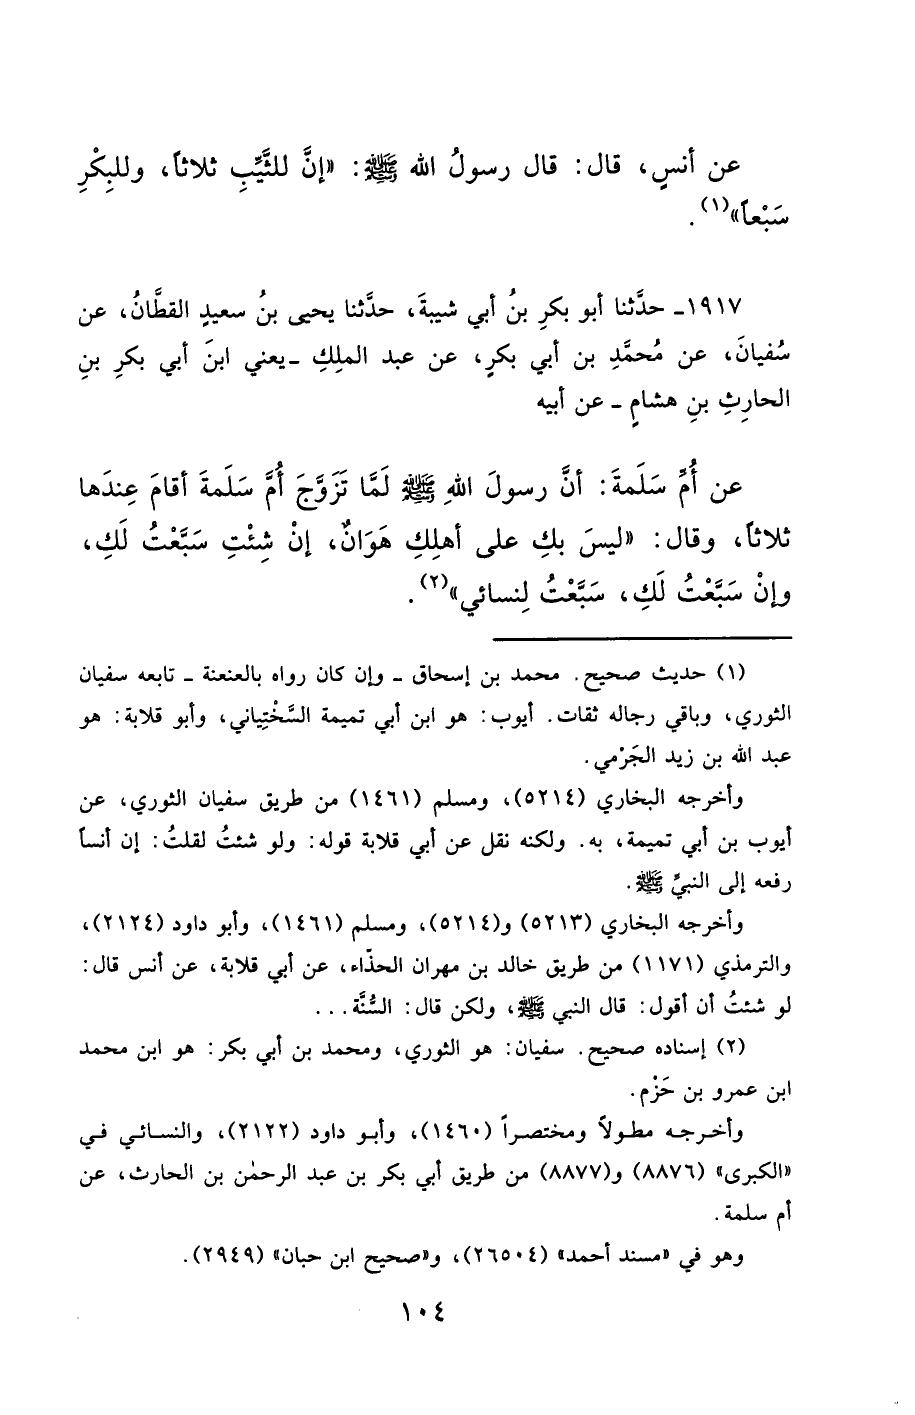 عن أنسٍ، قال: قال رسولُ الله ﷺ: «إنَّ للثَّيِّبِ ثلاثاً، وللبِكْرِ
سَبْعاً»(١).
١٩١٧ـ حدَّثنا أبو بكرِ بنُ أبي شيبةَ، حدَّثنا يحيى بنُ سعيدٍ القطَّانُ، عن
سُفيانَ، عن مُحمَّدِ بن أبي بكرٍ، عن عبد الملِكِ ـ يعني ابنَ أبي بكرِ بنِ
الحارِثِ بنِ هشامٍ ـ عن أبيه
عن أُمِّ سَلَمةَ: أنَّ رسولَ اللهِ ﷺ لَمَّا تَزَوَّجَ أُمَّ سَلَمةَ أقامَ عِندَها
ثلاثاً، وقال: «ليسَ بكِ على أهلِكِ هَوَانٌ، إنْ شِئْتِ سَبَّعْتُ لَكِ،
وإنْ سَبَّعْتُ لَكِ، سَبَّعْتُ لِنسائي»(٢).
(١) حديث صحيح. محمد بن إسحاق ـ وإن كان رواه بالعنعنة ـ تابعه سفيان
الثوري، وباقي رجاله ثقات. أيوب: هو ابن أبي تميمة السَّخْتِياني، وأبو قلابة: هو
عبد الله بن زيد الجَرْمي.
وأخرجه البخاري (٥٢١٤)، ومسلم (١٤٦١) من طريق سفيان الثوري، عن
أيوب بن أبي تميمة، به. ولكنه نقل عن أبي قلابة قوله: ولو شئتُ لقلتُ: إن أنساً
رفعه إلى النبيِّ ﷺ.
وأخرجه البخاري (٥٢١٣) و(٥٢١٤)، ومسلم (١٤٦١)، وأبو داود (٢١٢٤)،
والترمذي (١١٧١) من طريق خالد بن مهران الحذّاء، عن أبي قلابة، عن أنس قال:
لو شئتُ أن أقول: قال النبي ﷺ، ولكن قال: السُّنَّة...
(٢) إسناده صحيح. سفيان: هو الثوري، ومحمد بن أبي بكر: هو ابن محمد
ابن عمرو بن حَزْم.
وأخرجه مطولاً ومختصراً (١٤٦٠)، وأبو داود (٢١٢٢)، والنسائي في
«الكبرى» (٨٨٧٦) و(٨٨٧٧) من طريق أبي بكر بن عبد الرحمٰن بن الحارث، عن
أم سلمة.
وهو في «مسند أحمد» (٢٦٥٠٤)، و«صحيح ابن حبان» (٢٩٤٩).
١٠٤